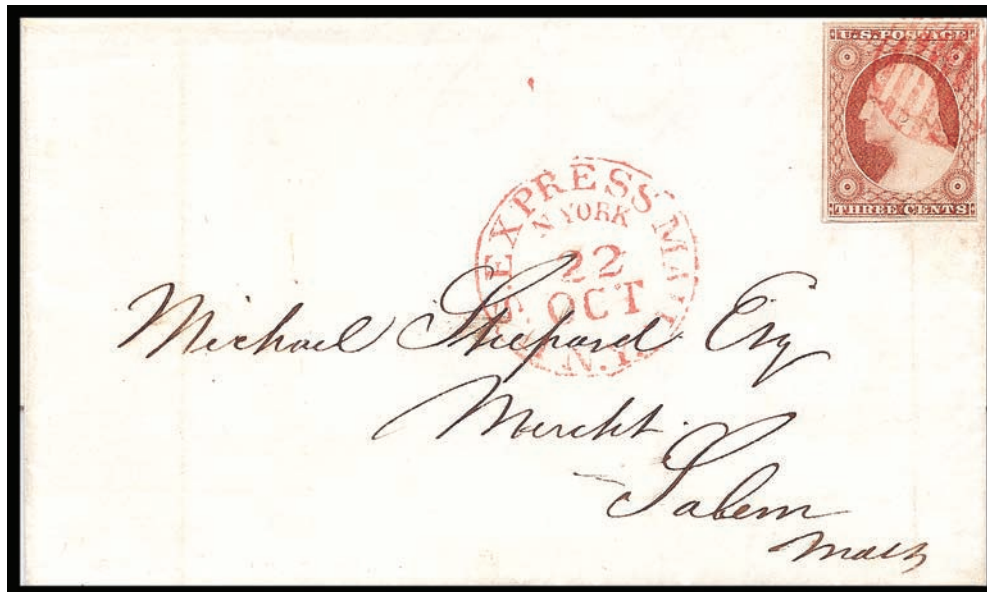 U.S. POSTAGE
THREE CENTS
U.S. EXPRESS MAIL
N. YORK
22
OCT
N.Y.
Michael Shepard Esq
Mercht.
Salem
Mass